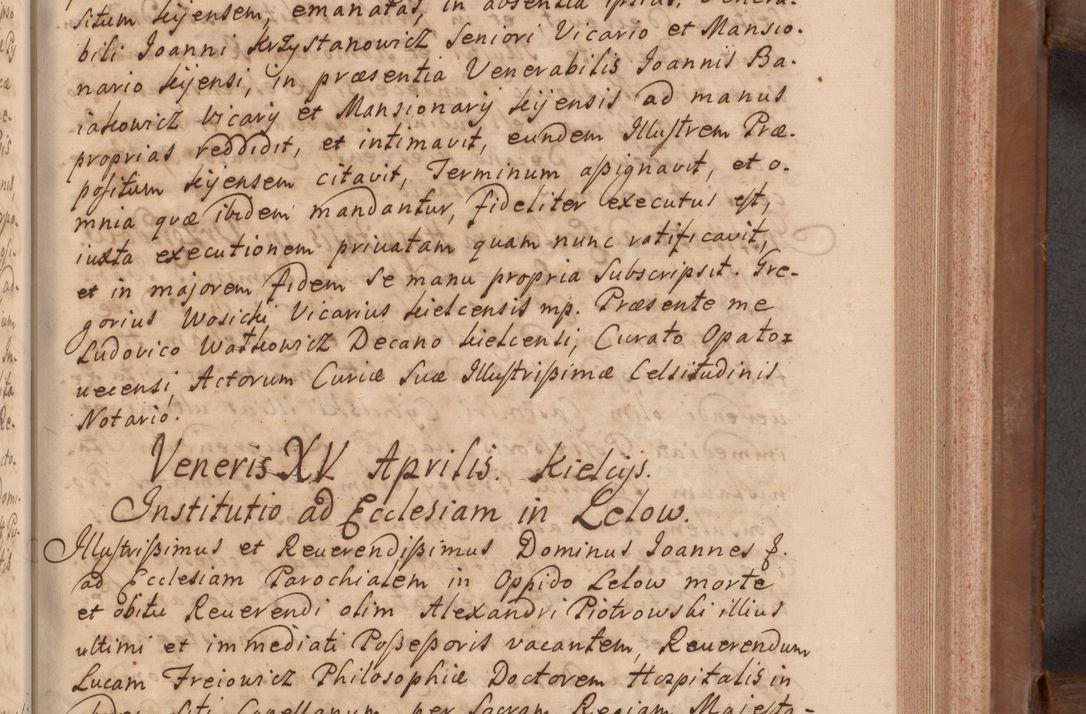 situm kijensem, emanatas, in absentia ipsius, Venera-
bili Joanni Krzystanowicz Seniori Vicario et Mansio-
nario kijensi, in præsentia Venerabilis Joannis Ba-
iakowicz Vicarij et Mansionarij kijensis ad manus
proprias reddidit, et intimavit, eundem Illustrem Præ-
positum kijensem citavit, Terminum assignavit, et o-
mnia quæ ibidem mandantur, fideliter executus est,
iuxta executionem privatam quam nunc ratificavit,
et in majorem fidem se manu propria subscripsit. Gre-
gorius Wosicki Vicarius kielcensis mp. Præsente me
Ludovico Watkowicz Decano kielcensi, Curato Opato-
uecensi, Actorum Curiæ Suæ Illustrissimæ Celsitudinis
Notario.
Veneris XV Aprilis. Kielcijs.
Institutio ad Ecclesiam in Lelow.
Illustrissimus et Reuerendissimus Dominus Joannes f.
ad Ecclesiam Parochialem in Oppido Lelow morte
et obitu Reuerendi olim Alexandri Piotrowski illius
ultimi et immediati Possessoris vacantem, Reuerendum
Lucam Freiowicz Philosophiæ Doctorem Hospitalis in
Siti Capellanum per Sacram Regiam Majesta-